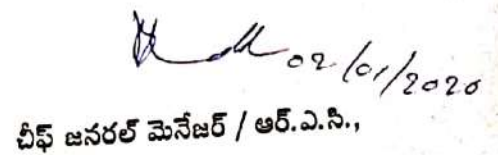 02/01/2020
చీఫ్ జనరల్ మేనేజర్ / ఆర్.ఎ.సి.,